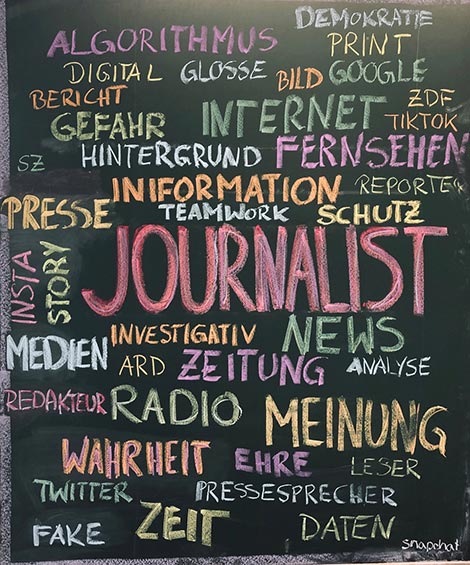 DEMOKRATIE
ALGORITHMUS PRINT
DIGITAL GLOSSE BILD GOOGLE
BERICHT INTERNET ZDF
GEFAHR TIKTOK
SZ HINTERGRUND FERNSEHEN
INIFORMATION REPORTER
PRESSE TEAMWORK SCHUTZ
INSTA STORY JOURNALIST
MEDIEN INVESTIGATIV NEWS
ARD ZEITUNG ANALYSE
REDAKTEUR RADIO MEINUNG
WAHRHEIT EHRE LESER
TWITTER PRESSESPRECHER
FAKE ZEIT DATEN
snapchat